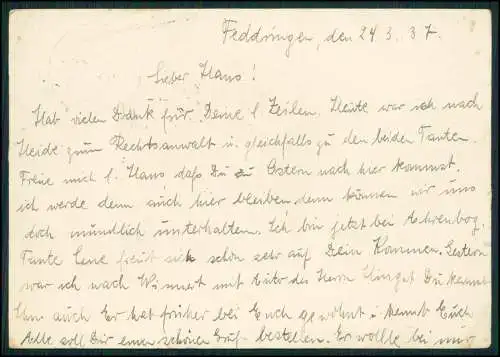 Feddringen, den 24. 3. 37.
Lieber Hans!
Hab vielen Dank für Deine l. Zeilen. Heute war ich nach
Heide zum Rechtsanwalt u. gleichfalls zu den beiden Tanten.
Freue mich l. Hans daß Du zu Ostern nach hier kommst.
ich werde dann auch hier bleiben dann können wir uns
doch mündlich unterhalten. Ich bin jetzt bei
Tante Lene freut sich schon sehr auf Dein Kommen. Gestern
war ich nach mit Auto der Herr Du kennst
Ihn auch Er hat früher bei Euch gewohnt u. kennt Euch
Alle soll Dir einen schönen Gruß bestellen. Er wollte bei mir